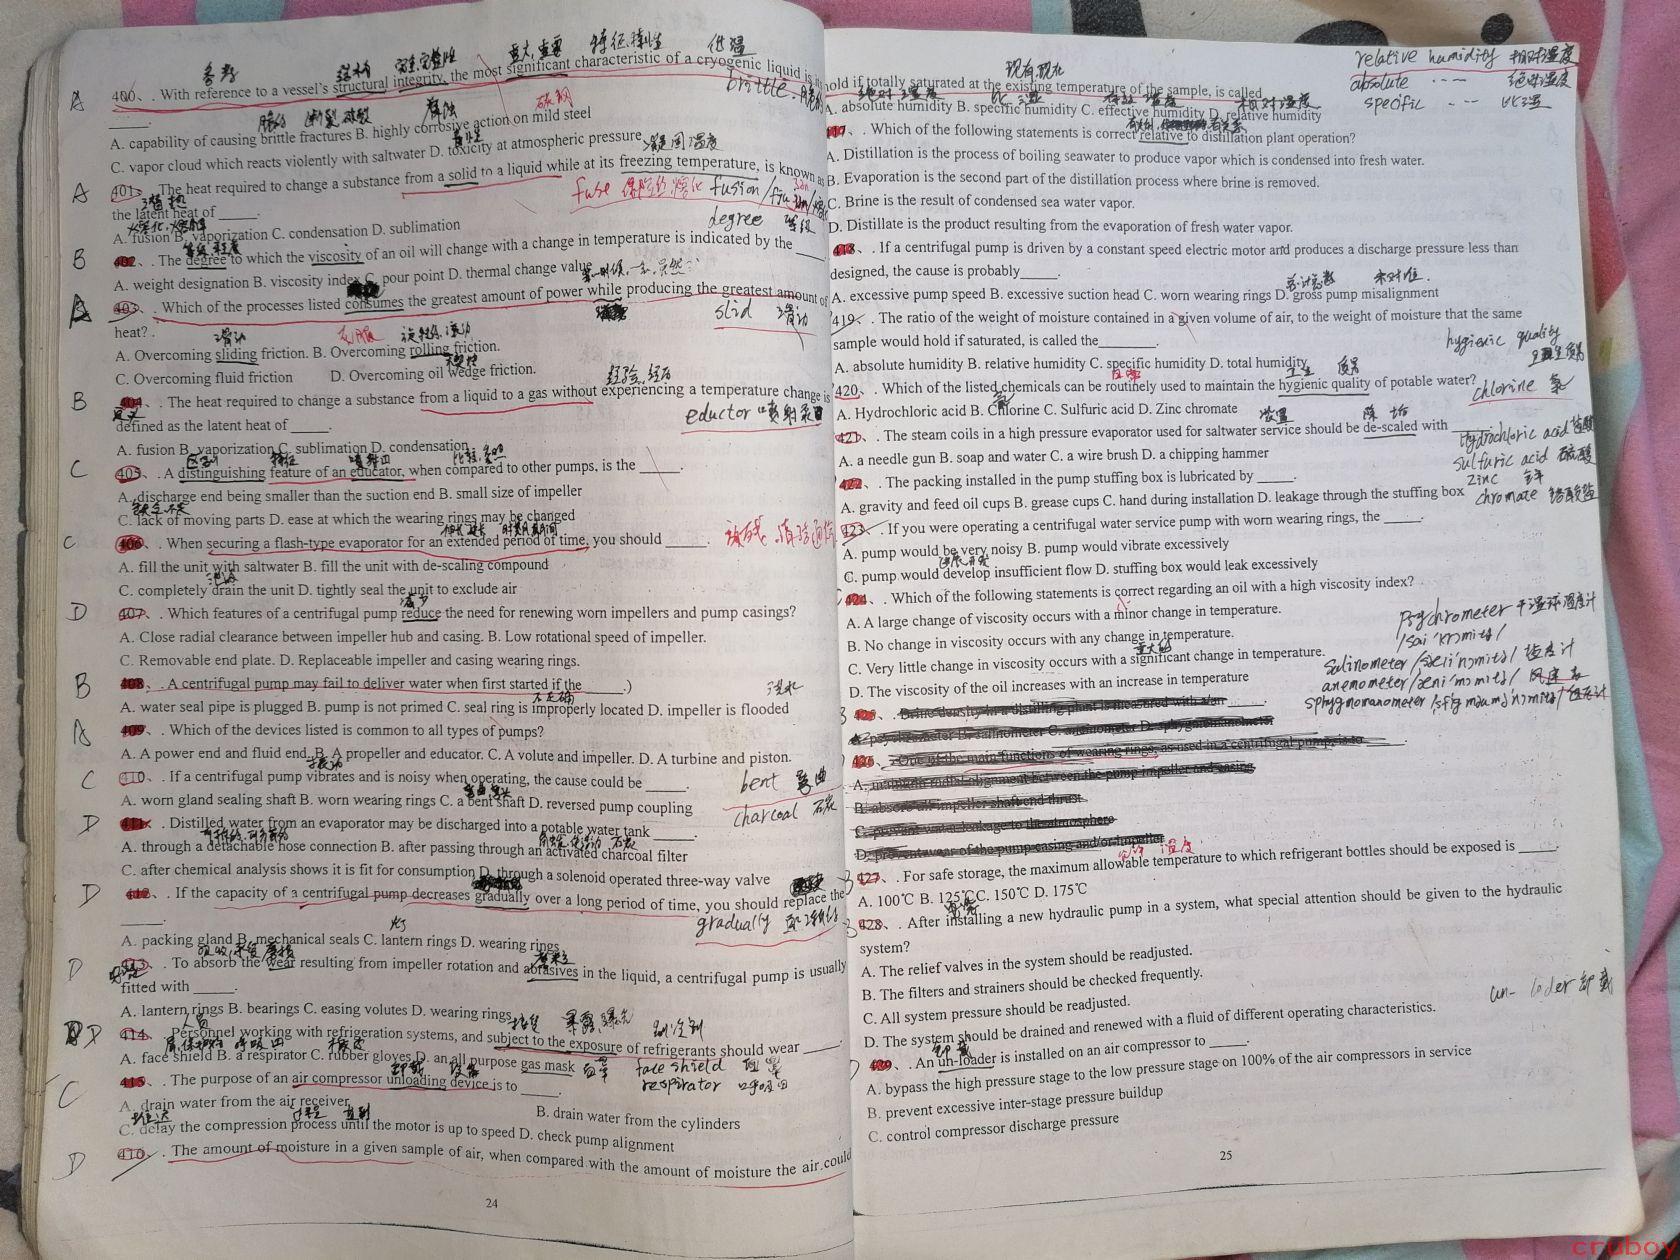 参考
结构
完整,完整性
重大,重要
特征,特性
低温
A 400、. With reference to a vessel's structural integrity, the most significant characteristic of a cryogenic liquid is its
brittle
断裂
腐蚀
碳钢
A. capability of causing brittle fractures B. highly corrosive action on mild steel
C. vapor cloud which reacts violently with saltwater D. toxicity at atmospheric pressure
凝固温度
A 401、. The heat required to change a substance from a solid to a liquid while at its freezing temperature, is known as
潜热
fuse 保险丝 熔化 fusion
the latent heat of _____.
degree 等级
A. fusion B. vaporization C. condensation D. sublimation
B 402、. The degree to which the viscosity of an oil will change with a change in temperature is indicated by the _____.
A. weight designation B. viscosity index C. pour point D. thermal change value
403、. Which of the processes listed consumes the greatest amount of power while producing the greatest amount of
slid 滑动
heat? .
滑动
克服
A. Overcoming sliding friction. B. Overcoming rolling friction.
C. Overcoming fluid friction D. Overcoming oil wedge friction.
经验,经历
B 404、. The heat required to change a substance from a liquid to a gas without experiencing a temperature change is
定义
eductor 喷射泵
defined as the latent heat of _____.
A. fusion B. vaporization C. sublimation D. condensation
区别
特征
C 405、. A distinguishing feature of an educator, when compared to other pumps, is the _____.
A. discharge end being smaller than the suction end B. small size of impeller
C. lack of moving parts D. ease at which the wearing rings may be changed
C 406、. When securing a flash-type evaporator for an extended period of time, you should _____.
A. fill the unit with saltwater B. fill the unit with de-scaling compound
C. completely drain the unit D. tightly seal the unit to exclude air
减少
D 407、. Which features of a centrifugal pump reduce the need for renewing worn impellers and pump casings?
A. Close radial clearance between impeller hub and casing. B. Low rotational speed of impeller.
C. Removable end plate. D. Replaceable impeller and casing wearing rings.
B 408、. A centrifugal pump may fail to deliver water when first started if the_____.)
不正确
A. water seal pipe is plugged B. pump is not primed C. seal ring is improperly located D. impeller is flooded
A 409、. Which of the devices listed is common to all types of pumps?
A. A power end and fluid end. B. A propeller and educator. C. A volute and impeller. D. A turbine and piston.
C 410、. If a centrifugal pump vibrates and is noisy when operating, the cause could be _____.
bent 弯曲
A. worn gland sealing shaft B. worn wearing rings C. a bent shaft D. reversed pump coupling
charcoal 石炭
D 411、. Distilled water from an evaporator may be discharged into a potable water tank _____.
A. through a detachable hose connection B. after passing through an activated charcoal filter
C. after chemical analysis shows it is fit for consumption D. through a solenoid operated three-way valve
D 412、. If the capacity of a centrifugal pump decreases gradually over a long period of time, you should replace the
_____.
灯
gradually 逐渐的
A. packing gland B. mechanical seals C. lantern rings D. wearing rings
D 413、. To absorb the wear resulting from impeller rotation and abrasives in the liquid, a centrifugal pump is usually
fitted with _____.
A. lantern rings B. bearings C. easing volutes D. wearing rings
人员
暴露,曝光
D 414、. Personnel working with refrigeration systems, and subject to the exposure of refrigerants should wear _____.
A. face shield B. a respirator C. rubber gloves D. an all purpose gas mask
face shield 面罩
卸载 设备
respirator 呼吸器
C 415、. The purpose of an air compressor unloading device is to _____.
A. drain water from the air receiver B. drain water from the cylinders
推迟
过程
直到
C. delay the compression process until the motor is up to speed D. check pump alignment
D 416、. The amount of moisture in a given sample of air, when compared with the amount of moisture the air could
24
relative humidity 相对湿度
现有,现在
absolute --- 绝对湿度
hold if totally saturated at the existing temperature of the sample, is called _____
specific --- 比湿
绝对湿度
比湿
相对湿度
A. absolute humidity B. specific humidity C. effective humidity D. relative humidity
417、. Which of the following statements is correct relative to distillation plant operation?
A. Distillation is the process of boiling seawater to produce vapor which is condensed into fresh water.
B. Evaporation is the second part of the distillation process where brine is removed.
C. Brine is the result of condensed sea water vapor.
D. Distillate is the product resulting from the evaporation of fresh water vapor.
418、. If a centrifugal pump is driven by a constant speed electric motor and produces a discharge pressure less than
designed, the cause is probably_____.
A. excessive pump speed B. excessive suction head C. worn wearing rings D. gross pump misalignment
419、. The ratio of the weight of moisture contained in a given volume of air, to the weight of moisture that the same
sample would hold if saturated, is called the_______.
hygienic quality
卫生质量
A. absolute humidity B. relative humidity C. specific humidity D. total humidity
日常
卫生
质量
420、. Which of the listed chemicals can be routinely used to maintain the hygienic quality of potable water?
chlorine 氯
氯
A. Hydrochloric acid B. Chlorine C. Sulfuric acid D. Zinc chromate
装置
除垢
421、. The steam coils in a high pressure evaporator used for saltwater service should be de-scaled with _____
hydrochloric acid 盐酸
A. a needle gun B. soap and water C. a wire brush D. a chipping hammer
sulfuric acid 硫酸
422、. The packing installed in the pump stuffing box is lubricated by _____.
zinc 锌
A. gravity and feed oil cups B. grease cups C. hand during installation D. leakage through the stuffing box
chromate 铬酸盐
423、. If you were operating a centrifugal water service pump with worn wearing rings, the _____.
A. pump would be very noisy B. pump would vibrate excessively
C. pump would develop insufficient flow D. stuffing box would leak excessively
424、. Which of the following statements is correct regarding an oil with a high viscosity index?
A. A large change of viscosity occurs with a minor change in temperature.
psychrometer 干湿球温度计
B. No change in viscosity occurs with any change in temperature.
C. Very little change in viscosity occurs with a significant change in temperature.
salinometer 盐度计
D. The viscosity of the oil increases with an increase in temperature
anemometer 风速表
sphygmomanometer 血压计
425、. Brine density in a distilling plant is measured with a/an _____.
A. psychrometer B. salinometer C. anemometer D. sphygmomanometer
426、. One of the main functions of wearing rings, as used in a centrifugal pump, is to _____.
A. maintain radial alignment between the pump impeller and casing
B. absorb all impeller shaft end thrust
C. prevent water leakage to the atmosphere
D. prevent wear of the pump casing and/or impeller
允许 温度
427、. For safe storage, the maximum allowable temperature to which refrigerant bottles should be exposed is _____.
A. 100℃ B. 125℃ C. 150℃ D. 175℃
428、. After installing a new hydraulic pump in a system, what special attention should be given to the hydraulic
system?
A. The relief valves in the system should be readjusted.
B. The filters and strainers should be checked frequently.
C. All system pressure should be readjusted.
un-loder 卸载
D. The system should be drained and renewed with a fluid of different operating characteristics.
卸载
429、. An un-loader is installed on an air compressor to _____.
A. bypass the high pressure stage to the low pressure stage on 100% of the air compressors in service
B. prevent excessive inter-stage pressure buildup
C. control compressor discharge pressure
25
cruboy